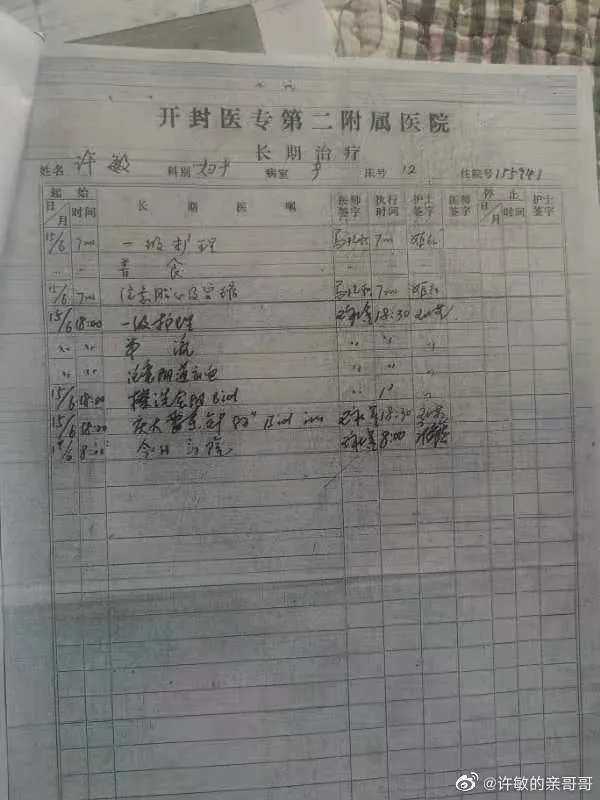 开封医专第二附属医院
长期治疗
姓名 许敏 科别 妇产 病室 产 床号 12 住院号 155941
起始 长期医嘱 医师签字 执行时间 护士签字 医师签字 停止 护士签字
日/月 时间 日/月 时间
15/6 7:00 一级护理 7:00
〃 〃 普食 〃 〃 〃
15/6 7:00 注意胎心及宫缩 7:00
15/6 18:00 一级护理 18:30
〃 〃 半流 〃 〃 〃
〃 〃 注意阴道出血 〃 〃 〃
15/6 18:00 擦洗会阴 Bid 〃 〃 〃
15/6 18:00 庆大霉素 Bid 18:30
8:00 今日出院 8:00
@许敏的亲哥哥